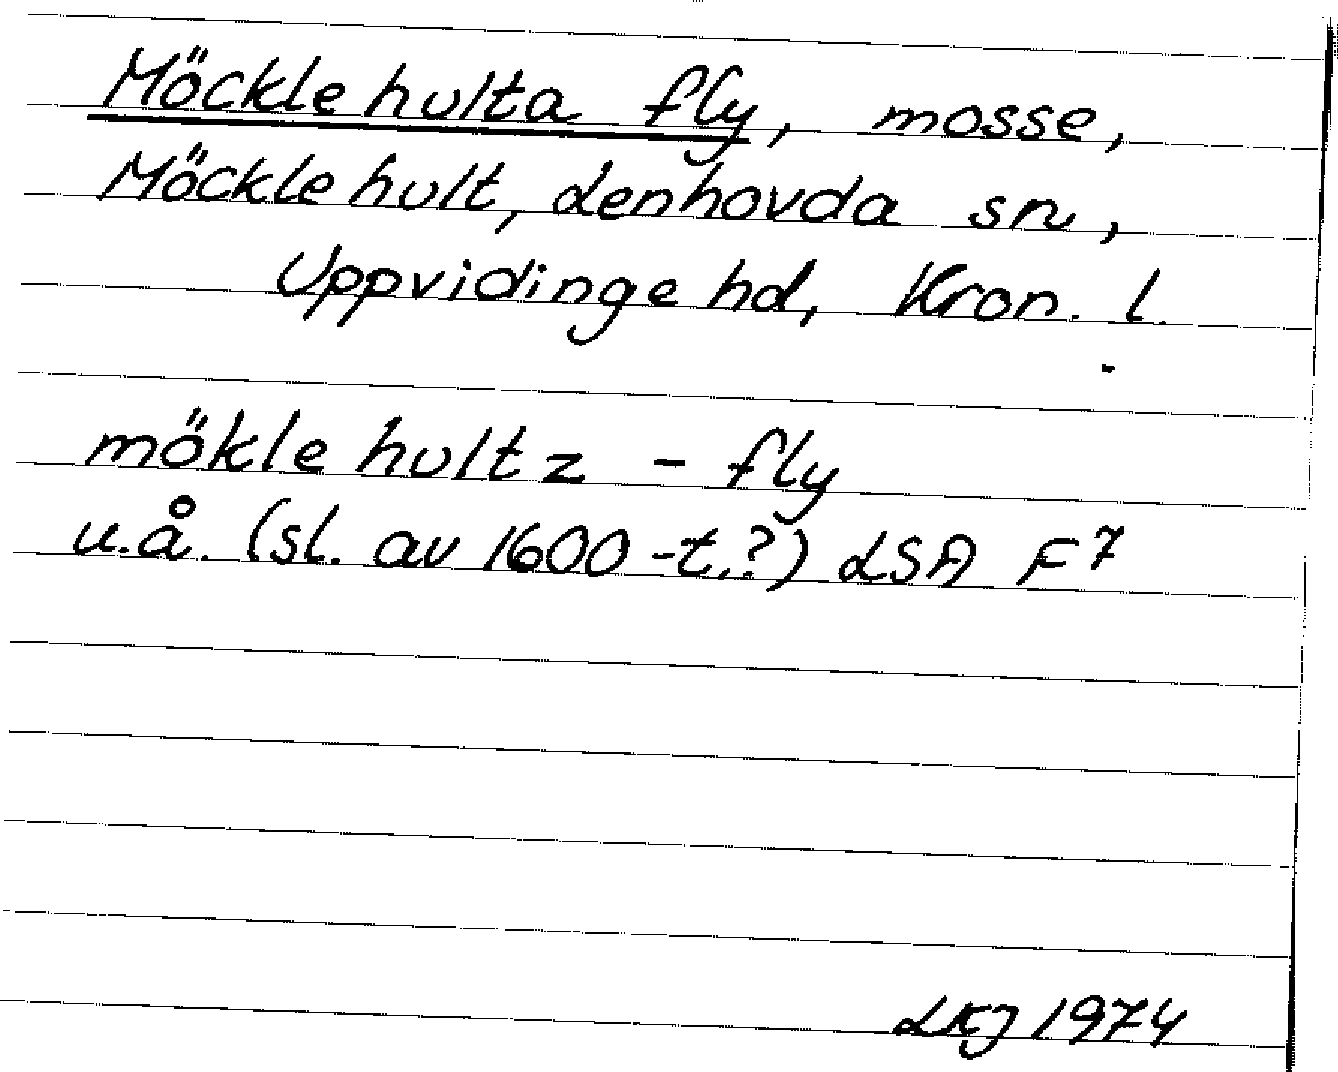 Möckle hulta fly, mosse,
Möckle hult, Lenhovda sn,
Uppvidinge hd, Kron. l.
mökle hultz - fly
u.å. (sl. av 1600-t.?) LSA F7
LKJ 1974